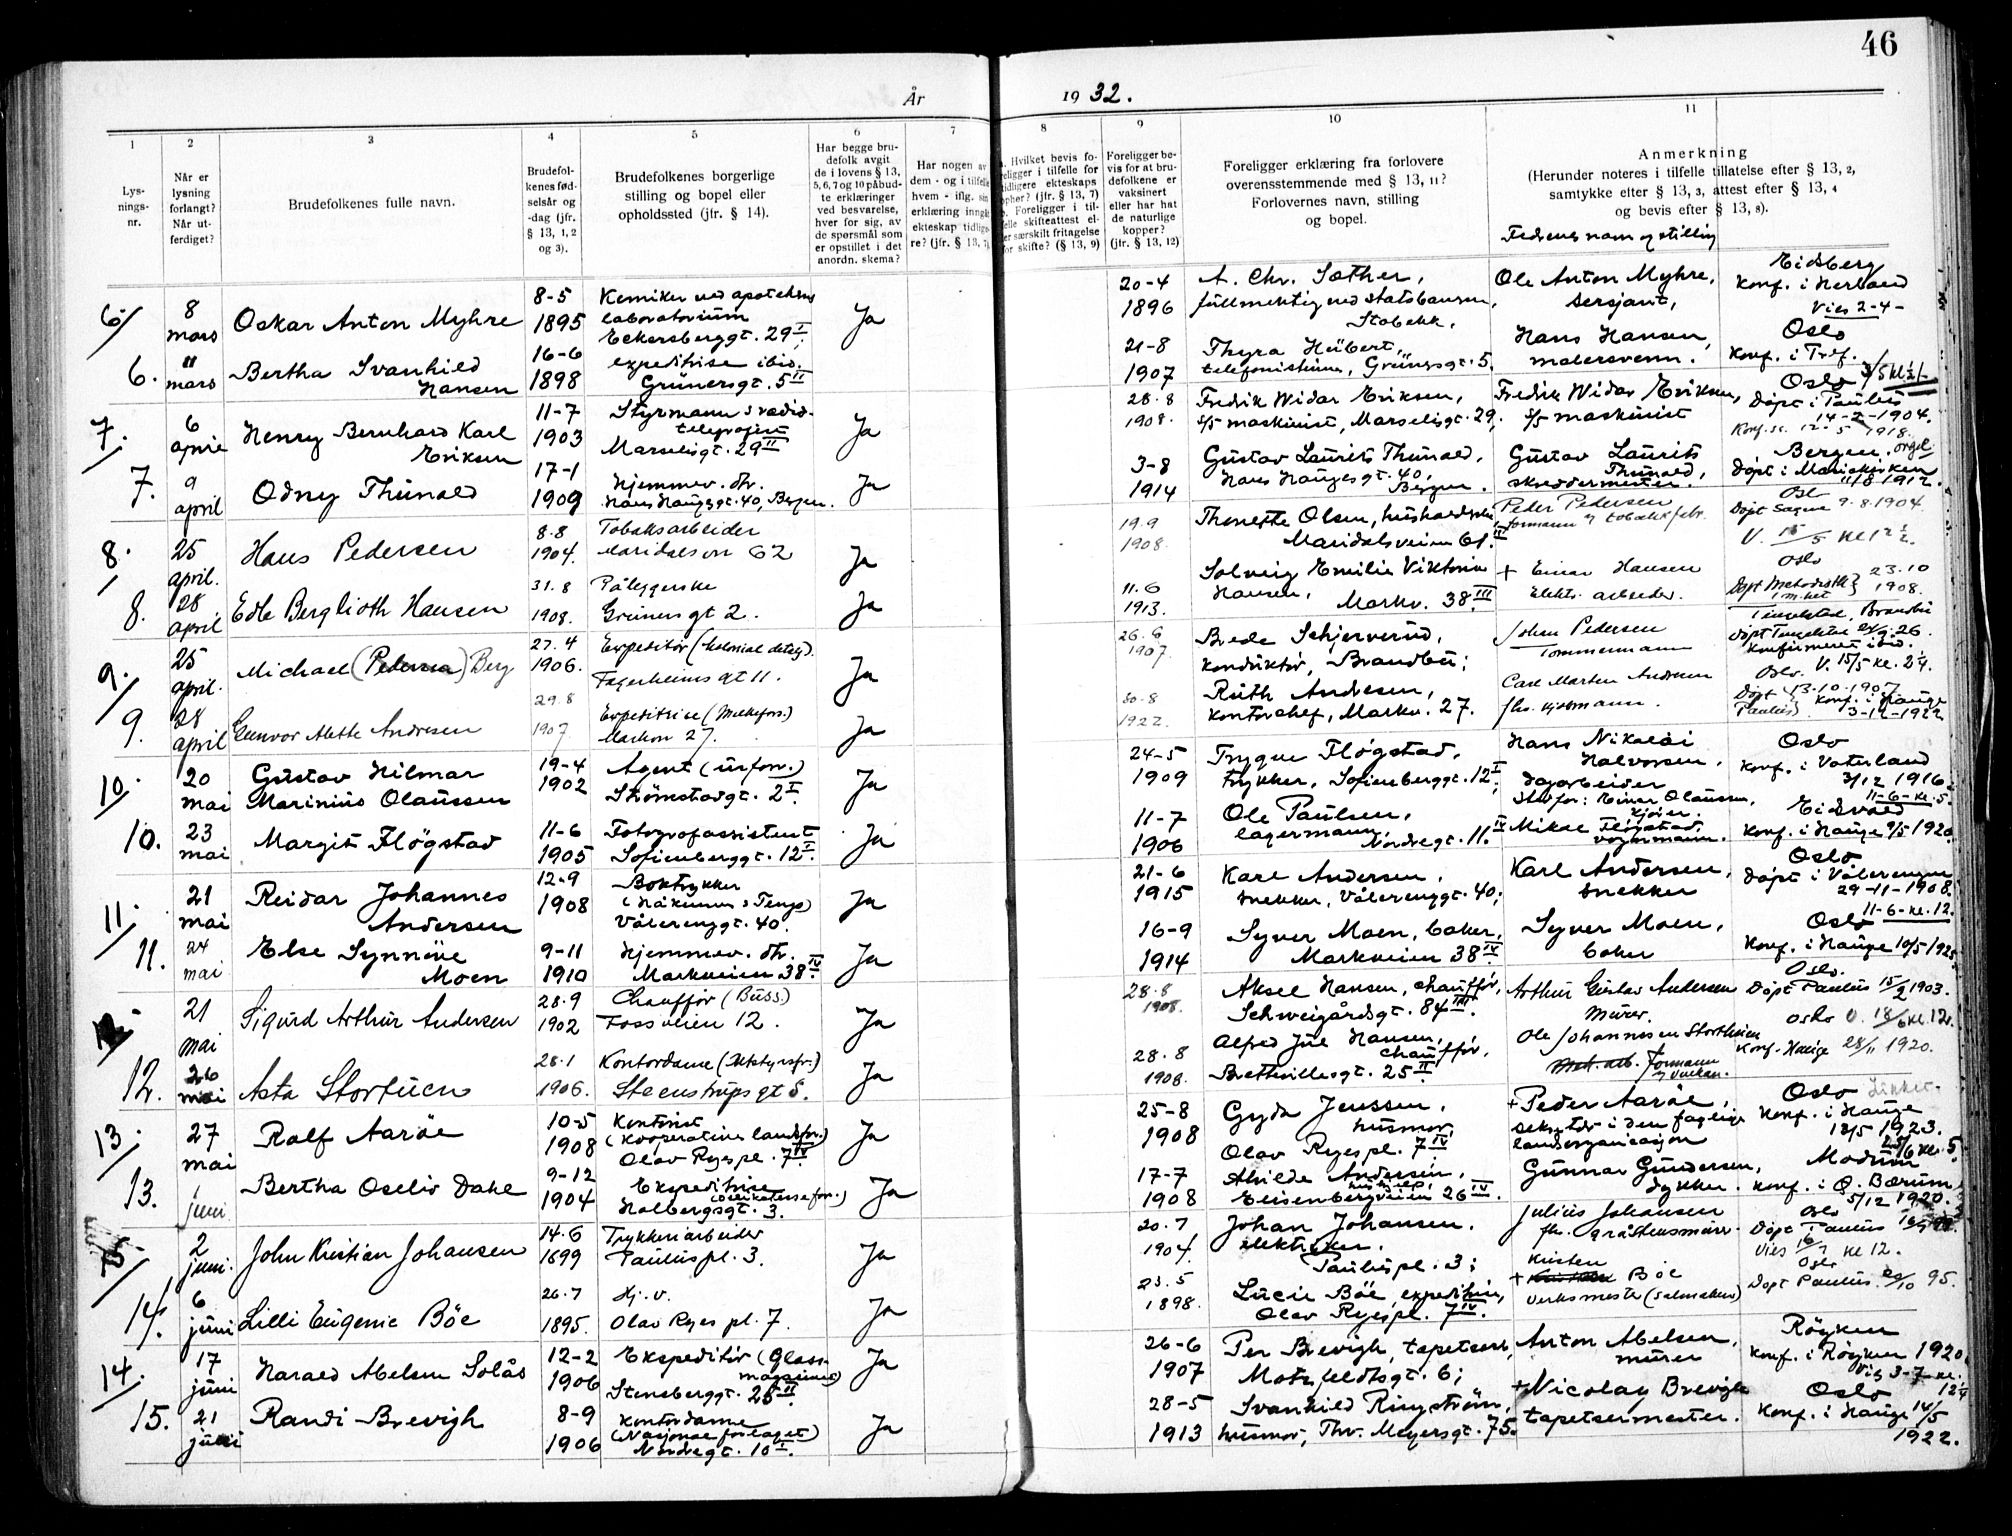 46
År 1932.
1
Lys-
nings-
nr.
2
Når er
lysning
forlangt?
Når ut-
ferdiget?
3
Brudefolkenes fulle navn.
4
Brudefol-
kenes fød-
selsår og
-dag (jfr.
§ 13, 1, 2
og 3).
5
Brudefolkenes borgerlige
stilling og bopel eller
opholdssted (jfr. § 14).
6
Har begge bru-
defolk avgit
de i lovens § 13,
5, 6, 7 og 10 påbud-
te erklæringer
ved besvarelse,
hver for sig, av
de spørsmål som
er opstillet i det
anordn. skema?
7
Har nogen av
dem - og i tilfelle
hvem - iflg. sin
erklæring inngått
ekteskap tidlige-
re? (jfr. § 13, 7)
8
Hvilket bevis fo-
religger i tilfelle for
tidligere ekteskaps
opher? (jfr. § 13, 7)
b. Foreligger i til-
felle skifteattest el-
ler særskilt fritagelse
for skifte? (§ 13, 9)
9
Foreligger be-
vis for at bru-
defolkene er
vaksinert
eller har hat
de naturlige
kopper?
(jfr. § 13, 12)
10
Foreligger erklæring fra forlovere
overensstemmende med § 13, 11?
Forlovernes navn, stilling
og bopel.
11
Anmerkning
(Herunder noteres i tilfelle tillatelse efter § 13, 2,
samtykke efter § 13, 3, attest efter § 13, 4
og bevis efter § 13, 8).
Fedrenes navn og stilling
6/
8 mars
Oskar Anton Myhre
8-5 1895
Kemiker ved apotekens
laboratorium
Eckersberggt. 29 I
Ja
20-4 1896
A. Chr. Sæther,
fullmektig ved statsbanene,
Stabekk.
Ole Anton Myhre,
sersjant,
Eidsberg
Konf. i
Vies 2-4-
6.
11 mars
Bertha Svanhild
Hansen
16-6 1898
expeditrise ibid.
Grünersgt. 5 II
21-8 1907
Thyra Hübert,
telefonistinne, Grünersgt. 5.
Hans Hansen,
malersvenn.
Oslo
Konf. i Tref.
7.
6 april
Henry Bernhard Karl
Eriksen
11-7 1903
Styrmann & radio-
telegrafist
Marselisgt. 29 II
Ja
28-8 1908.
Fredrik Widar Eriksen,
s/s maskinist, Marselisgt. 29,
Fredrik Widar Eriksen,
s/s maskinist
Oslo
Døpt i Paulus
14-2-1904.
12-5 1918.
7.
9 april
Odny Thunold
17-1 1909
Hjemmev. dtr.
Hans Haugesgt. 40, Bergen.
Ja
3-8 1914
Gustav Laurits Thunold,
Hans Haugesgt. 40,
Bergen.
Gustav Laurits
Thunold,
skreddermester.
Bergen.
Døpt i Mariakirken
11/8 1912.
8.
25 april.
Hans Pedersen
8.8 1904.
Tobaksarbeider
Maridalsvn 62
Ja
19.9 1908.
Thoneste Olsen,
Maridalsveien 61.
Peder Pedersen
formann v. tobakkfabr.
Oslo
Døpt Sagene 9-8-1904.
8.
28 april
Edle Berglioth Hansen
31.8 1908.
Påleggerske
Grünersgt 2.
Ja
11.6 1913.
Solveig Emilie Viktoria
Hansen,
Markv. 38 III
+ Einar Hansen
Elektr. arbeider.
Oslo
Døpt Metodistk.
23.10 1908.
9.
25 april.
Michael (Pedersen) Berg
27.4 1906.
Expeditør (Kolonial detalj).
Fagerheims gt 11.
Ja
26-6 1907.
Brede Schjerverud,
konduktør, Brandbu;
Johan Pedersen
Tømmermann
Tingelstad, Brandbu
Konfirmeret ibid.
V. 15/5 kl. 2 1/4.
9.
28 april
Gunvor Alette Andresen
29.8 1907
Expeditrise (Melkefors.)
Markvn 27.
Ja
30-8 1922.
Ruth Andresen,
kontorchef, Markv. 27.
Carl Morten Andresen
Oslo.
Døpt 13-10-1907
Paulus Konf. i Hauge
3-12-1922
10.
20 mai
Gustav Hilmar
Marinius Olaussen
19-4 1902
Agent (urforr.)
Strömstadgt. 2 I
Ja
24-5 1909
Trygve Fløgstad,
trykker, Sofienberggt. 12 I;
Hans Nikolai
Halvorsen,
dagarbeider
Stedfor: Einar Olaussen,
kjører.
Oslo
Konf. i Vaterland
3/12 1916.
11-6-kl. 5.
10.
23 mai
Margit Fløgstad
11-6 1905
Fotografassistent
Sofienberggt. 12 I
Ja
11-7 1906
Ole Paulsen,
lagermann,
Nordregt. 11. IV
Mikal Fløgstad,
vognmann.
Eidsvold
Konf. i Hauge 9/5 1920.
11.
21 mai
Reidar Johannes
Andersen
12-9 1908
Boktrykker
Vålerenggt. 40.
Ja
21-6 1915
Karl Andersen,
snekker, Vålerenggt. 40;
Karl Andersen,
snekker
Oslo
Døpt i Vålerengen
29-11-1908.
11-6-kl. 12.
11.
24 mai
Else Synnöve
Moen
9-11 1910
Hjemmev. dtr.
Markveien 38 IV
Ja
16-9 1914
Syver Moen, baker,
Markveien 38 IV
Syver Moen,
baker
Oslo
Konf. i Hauge 10/5 1925.
12.
21 mai
Sigurd Arthur Andersen
28.9 1902
Chauffør (Buss.)
Fossveien 12.
Ja
28.8 1908.
Aksel Hansen, chauffør,
Schweigårdsgt. 84 III
Arthur Gustav Andersen
Murer.
Oslo.
Døpt Paulus 15/2 1903.
V. 18/6 kl. 12.
12.
26 mai
Asta Stortuen
28.1 1906.
Kontordame
Steenstrups gt 5.
Ja
28.8 1908.
Alfred Jul Hansen,
chauffør,
Brettevillesgt. 25 II
Ole Johannesen Stortuen
Formann
v. Vulkan.
Oslo
Konf. Hauge 28/11 1920.
13.
27 mai
Rolf Aarøe
10-5 1908
Kontorist
(Kooperative landsfor.)
Olav Ryespl. 7 IV
Ja
25-8 1908
Gyda Jenssen,
husmor,
Olav Ryespl. 7 IV
+ Peder Aarøe,
sekretær i den faglige
landsorganisasjon
Oslo
Konf. i Hauge
13/5 1923.
25/6 kl. 5.
13.
1 juni
Bertha Oselie Dahl
9-12 1904
Ekspeditrise
(Delikatesseforr.)
Holbergsgt. 3.
Ja
17-7 1908
Alvilde Andersen,
Eisenbergveien 26 IV
Gunnar Gundersen,
dykker.
Modum
Konf. i Ø. Bærum
5/12 1920.
2 juni.
John Kristian Johansen
14.6 1899
Trykkeriarbeider
Paulus pl. 3.
Ja
20.7 1904.
Johan Johansen.
elektriker.
Paulus pl. 3;
Julius Johansen
Oslo
Døpt i Paulus
Vies 16/7 kl 12.
14.
6 juni
Lilli Eugenie Böe
26.7 1895.
Hj. v.
Olav Ryes pl. 7.
Ja
23.5 1898.
Lucie Böe, expeditrise,
Olav Ryespl. 7 IV
Kristen
+ Böe
Verksmester (salmakeri)
Oslo
Døpt Paulus 20/10 95.
14.
17 juni
Harald Abelsen Solås
12-2 1906
Ekspeditør (Glass-
magasinet)
Stensberggt. 26 II
Ja
26-6 1907
Per Brevigh, tapetserer,
Motzfeldtsgt. 6;
Anton Abelsen,
murer
Røyken
Konf. i Røyken 1920.
Vig 3-7-kl. 12 1/4
15.
21 juni
Randi Brevigh
8-9 1906
Kontordame
(Nasjonalforlaget)
Nordregt. 10 I
Ja
28-5 1913
Svanhild Ringström,
husmor, Thv. Meyersgt. 75.
+ Nicolay Brevigh
tapetserermester.
Oslo
Konf. i Hauge 14/5
1922.